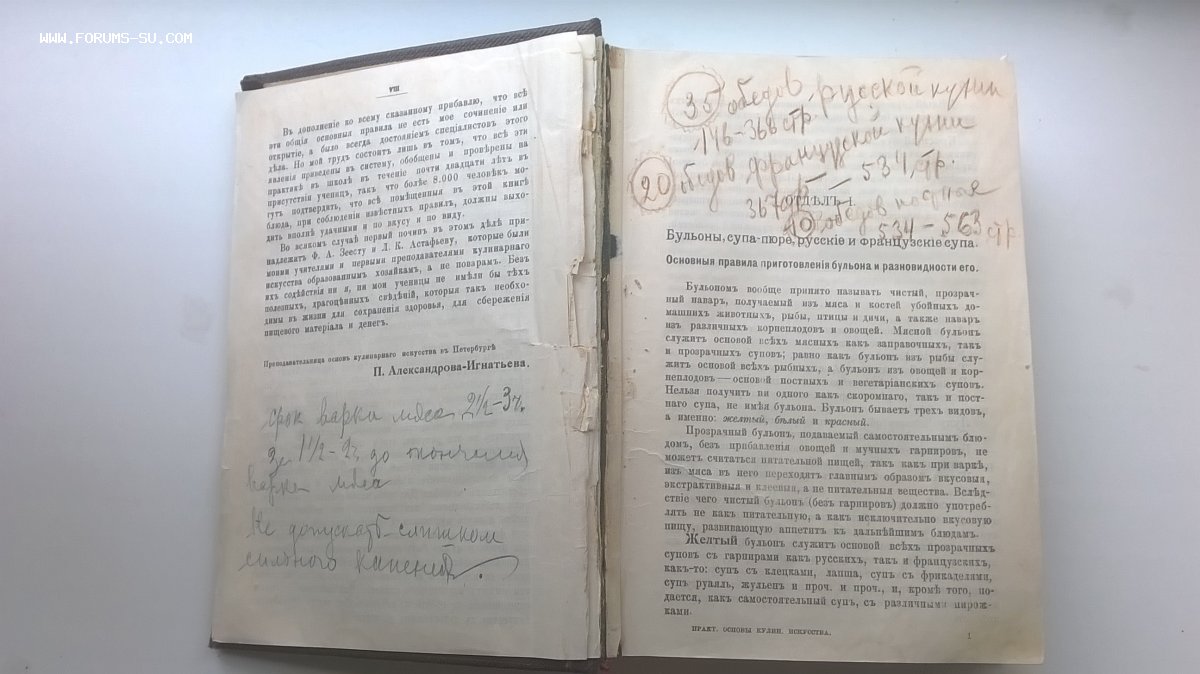 WWW.FORUMS-SU.COM
VIII
Въ дополненіе ко всему сказанному прибавлю, что всѣ
эти общія основныя правила не есть мое сочиненіе или
открытіе, а было всегда достояніемъ спеціалистовъ этого
дѣла. Но мой трудъ состоитъ лишь въ томъ, что всѣ эти
явленія приведены въ систему, обобщены и провѣрены на
практикѣ въ школѣ въ теченіе почти двадцати лѣтъ въ
присутствіи ученицъ, такъ что болѣе 8.000 человѣкъ мо-
гутъ подтвердить, что всѣ помѣщенныя въ этой книгѣ
блюда, при соблюденіи извѣстныхъ правилъ, должны выхо-
дить вполнѣ удачными и по вкусу и по виду.
Во всякомъ случаѣ первый починъ въ этомъ дѣлѣ при-
надлежитъ Ф. А. Зеесту и Л. К. Астафьеву, которые были
моими учителями и первыми преподавателями кулинарнаго
искусства образованнымъ хозяйкамъ, а не поварамъ. Безъ
ихъ содѣйствія ни я, ни мои ученицы не имѣли бы тѣхъ
полезныхъ, драгоцѣнныхъ свѣдѣній, которыя такъ необхо-
димы въ жизни для сохраненія здоровья, для сбереженія
пищевого матеріала и денегъ.
Преподавательница основъ кулинарнаго искусства въ Петербургѣ
П. Александрова-Игнатьева.
срок варки мяса 2½-3 ч.
За 1½-2ч до окончания
варки мяса
Не допускать слишком
сильного кипения.
35 обедов русской кухни
146-368 стр.
20 обедов французской кухни
368 — 534 стр.
ОТДѢЛЪ I.
10 обедов постные
534-563 стр
Бульоны, супа-пюре, русскіе и французскіе супа.
Основныя правила приготовленія бульона и разновидности его.
Бульономъ вообще принято называть чистый, прозрач-
ный наваръ, получаемый изъ мяса и костей убойныхъ до-
машнихъ животныхъ, рыбы, птицы и дичи, а также наваръ
изъ различныхъ корнеплодовъ и овощей. Мясной бульонъ
служитъ основой всѣхъ мясныхъ какъ заправочныхъ, такъ
и прозрачныхъ суповъ; равно какъ бульонъ изъ рыбы слу-
житъ основой всѣхъ рыбныхъ, а бульонъ изъ овощей и кор-
неплодовъ—основой постныхъ и вегетаріанскихъ суповъ.
Нельзя получить ни одного какъ скоромнаго, такъ и пост-
наго супа, не имѣя бульона. Бульонъ бываетъ трехъ видовъ,
а именно: желтый, бѣлый и красный.
Прозрачный бульонъ, подаваемый самостоятельнымъ блю-
домъ, безъ прибавленія овощей и мучныхъ гарнировъ, не
можетъ считаться питательной пищей, такъ какъ при варкѣ,
изъ мяса въ него переходятъ главнымъ образомъ вкусовыя,
экстрактивныя и клеевыя, а не питательныя вещества. Вслѣд-
ствіе чего чистый бульонъ (безъ гарнировъ) должно употреб-
лять не какъ питательную, а какъ исключительно вкусовую
пищу, развивающую аппетитъ къ дальнѣйшимъ блюдамъ.
Желтый бульонъ служитъ основой всѣхъ прозрачныхъ
суповъ съ гарнирами какъ русскихъ, такъ и французскихъ,
какъ-то: супъ съ клецками, лапша, супъ съ фрикаделями,
супъ руаяль, жульенъ и проч. и проч., и, кромѣ того, по-
дается, какъ самостоятельный супъ, съ различными пирож-
ками.
ПРАКТ. ОСНОВЫ КУЛИН. ИСКУССТВА.
1